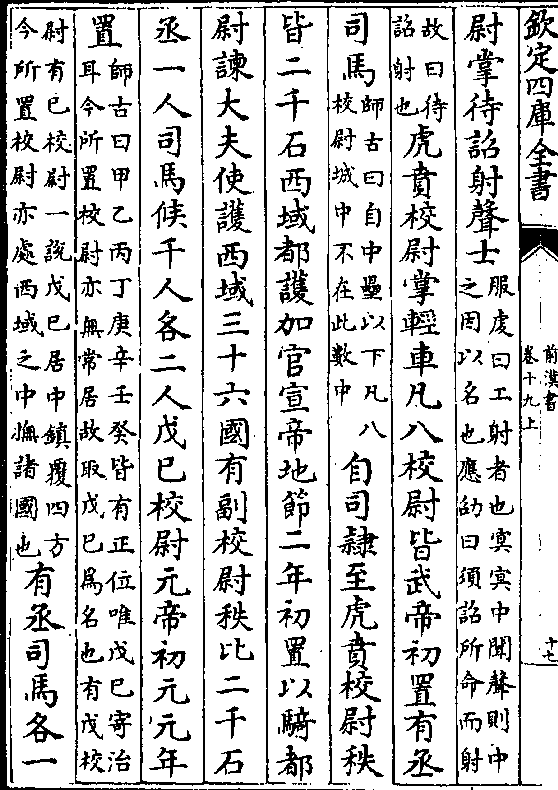 欽定四庫全書
尉掌待詔射聲士服䖍曰工射者也㝠㝠中聞聲則中
之因以名也應劭曰須詔所命而射
故曰待
詔射也虎賁校尉掌輕車凡八校尉皆武帝初置有丞
司馬師古曰自中壘以下凡八
校尉城中不在此數中自司隷至虎賁校尉秩
皆二千石西域都護加官宣帝地節二年初置以騎都
尉諫大夫使護西域三十六國有副校尉秩比二千石
丞一人司馬候千人各二人戊巳校尉元帝初元元年
置師古曰甲乙丙丁庚辛壬癸皆有正位唯戊巳寄治
耳今所置校尉亦無常居故取戊巳為名也有戊校
尉有巳校尉一說戊巳居中鎮覆四方
今所置校尉亦處西域之中撫諸國也有丞司馬各一
前漢書
卷十九上
十七